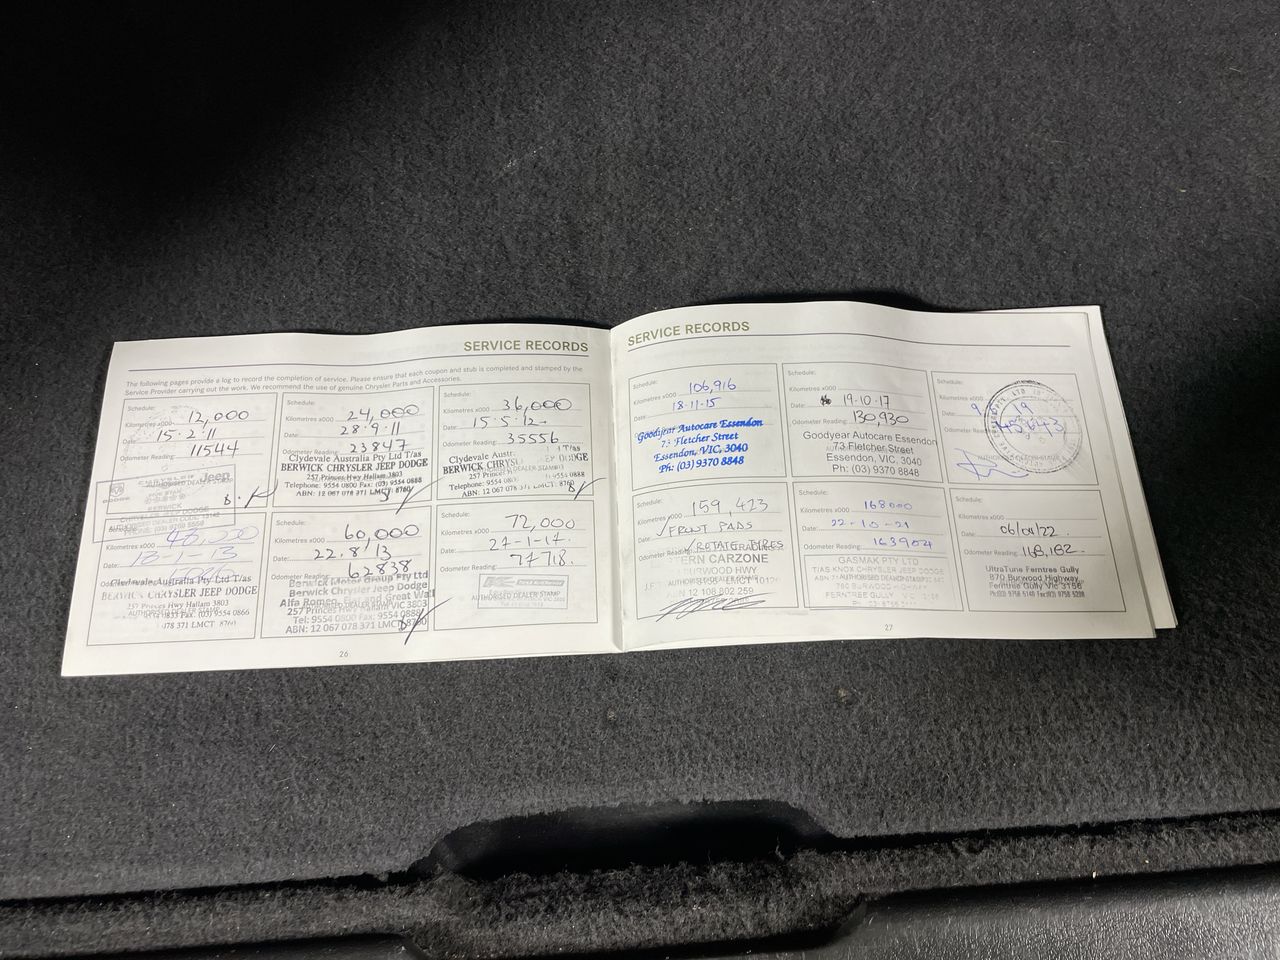 SERVICE RECORDS
The following pages provide a log to record the completion of service. Please ensure that each coupon and stub is completed and stamped by the
Service Provider carrying out the work. We recommend the use of genuine Chrysler Parts and Accessories.
Schedule:
Kilometres x000 12,000
Date: 15.2.11
11544
Jeep
DODGE
BERWICK
CHRYSLER JEEP DODGE
Schedule:
Kilometres x000 24,000
Date: 28.9.11
Odometer Reading: 23847
Clydevale Australia Pty Ltd T/as
BERWICK CHRYSLER JEEP DODGE
257 Princes Hwy Hallam 3803
Telephone: 9554 0800 Fax: (03) 9554 0888
ABN: 12 067 078 371 LMCT 8760
Schedule:
Kilometres x000 36,000
Date: 15.5.12
Odometer Reading: 35556
Clydevale Austr
T/as
BERWICK CHRYSL
257 Princes
Telephone: 9554 08
ABN: 12 067 078 371 LMCT 8760
Kilometres x000
Date:
Clydevale Australia Pty Ltd T/as
BERWICK CHRYSLER JEEP DODGE
257 Princes Hwy Hallam 3803
078 371 LMCT 8760
Schedule:
Kilometres x000 60,000
Date: 22.8/13
Odometer Reading: 62838
Berwick Motor Group Pty Ltd
Berwick Chrysler Jeep Dodge
Alfa Romeo, and Great Wall
257 Princes Hwy Hallam VIC 3803
Tel: 9554 0800 Fax: 9554 0888
ABN: 12 067 078 371 LMCT 8760
Schedule:
Kilometres x000 72,000
Date:
Odometer Reading: 77718
AUTHORISED DEALER STAMP
26
SERVICE RECORDS
Schedule:
Kilometres x000 106,916
Date: 18.11.15
Goodyear Autocare Essendon
73 Fletcher Street
Essendon, VIC, 3040
Ph: (03) 9370 8848
Schedule:
Kilometres x000
Date: 19.10.17
130,930
Goodyear Autocare Essendon
73 Fletcher Street
Essendon, VIC, 3040
Ph: (03) 9370 8848
Schedule:
Kilometres x000
Date:
Odometer Read
Schedule:
Kilometres x000 159,423
Date: / FRONT PADS
/ ROTATE TYRES
TERN CARZONE
BURWOOD HWY
AUTHORISED DEALER STAMP
12 108 802 259
Schedule:
Kilometres x000 168000
Date: 22-10-21
Odometer Reading: 163904
GASMAK PTY LTD
T/AS KNOX CHRYSLER JEEP DODGE
FERNTREE GULLY
Schedule:
Kilometres x000
Date: 06/01/22.
Odometer Reading: 168,182.
UltraTune Ferntree Gully
870 Burwood Highway
Ferntree Gully Vic 3156
27